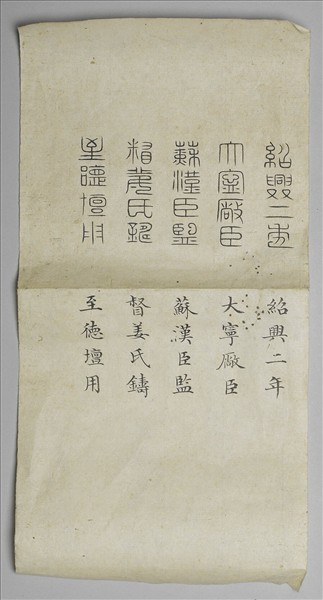 紹興二年
大寧廠臣
蘇漢臣監
督姜氏鑄
至德壇用
紹興二年
大寧厰臣
蘇漢臣監
督姜氏鑄
至徳壇用